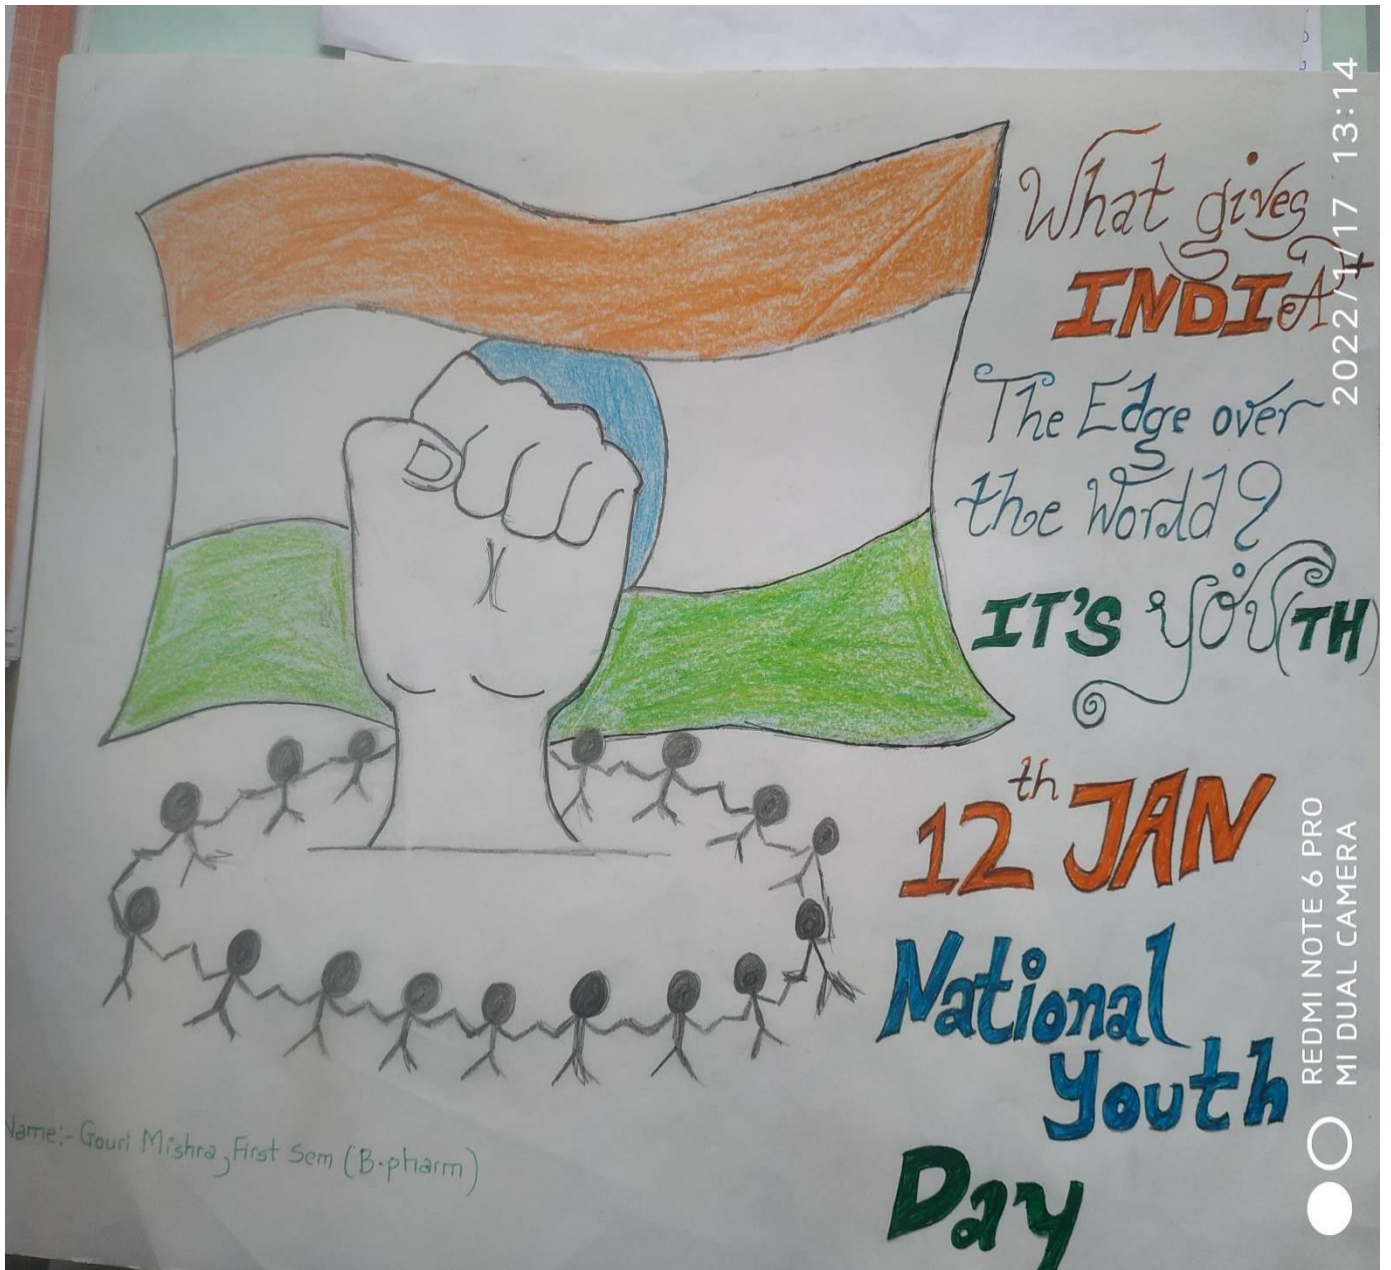 What gives
INDIA
The Edge over
the World?
IT'S YOU(TH)
12th JAN
National
Youth
Day
Name:- Gouri Mishra, First Sem (B.pharm)
2022/1/17 13:14
REDMI NOTE 6 PRO
MI DUAL CAMERA